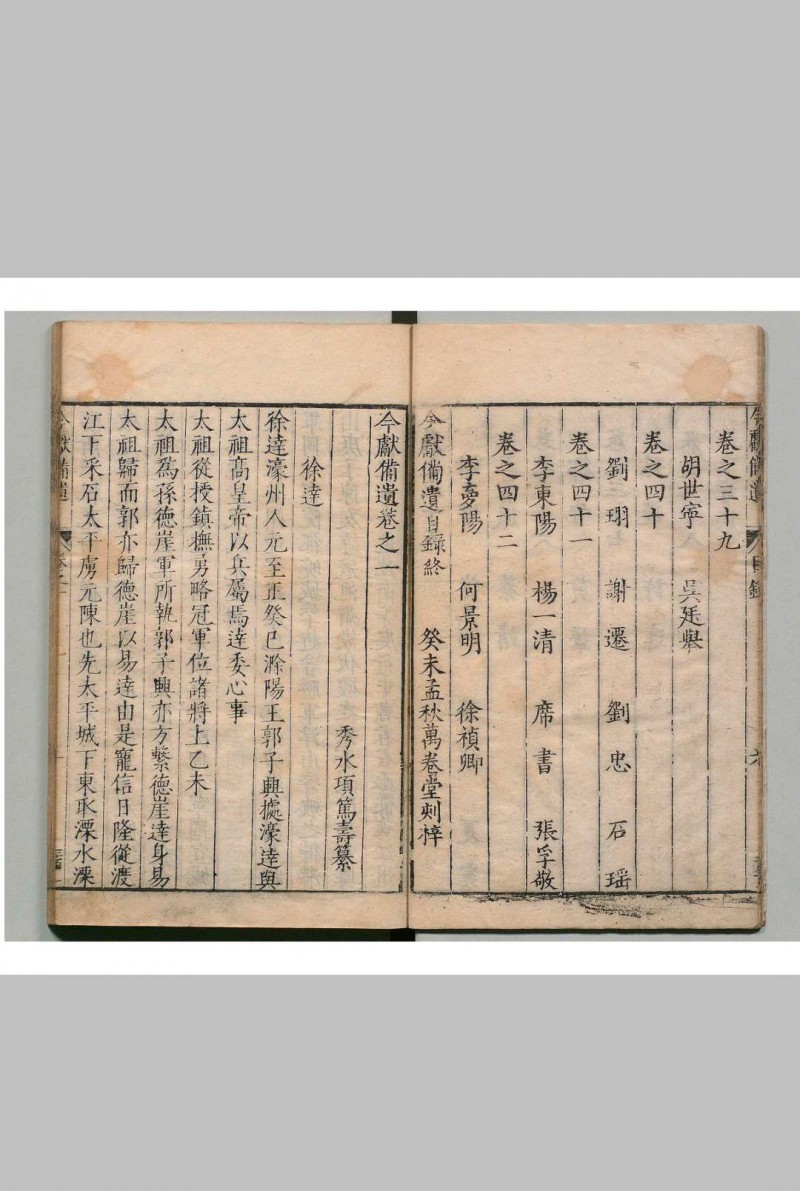 卷之三十九
胡世寧 吳廷舉
卷之四十
劉珝 謝遷 劉忠 石瑶
卷之四十一
李東陽 楊一清 席書 張孚敬
卷之四十二
李夢陽 何景明 徐禎卿
今獻備遺目錄終 癸未孟秋萬卷堂刻梓
今獻備遺卷之一
秀水項篤壽纂
徐達
徐達濠州人元至正癸巳滁陽王郭子興據濠達與
太祖高皇帝以兵屬焉達委心事
太祖從授鎮撫勇略冠軍位諸將上乙未
太祖為孫德崖軍所執郭子興亦方繫德崖達身易
太祖歸而郭亦歸德崖以易達由是寵信日隆從渡
江下采石太平虜元陳也先太平城下東取溧水溧
今獻備遺